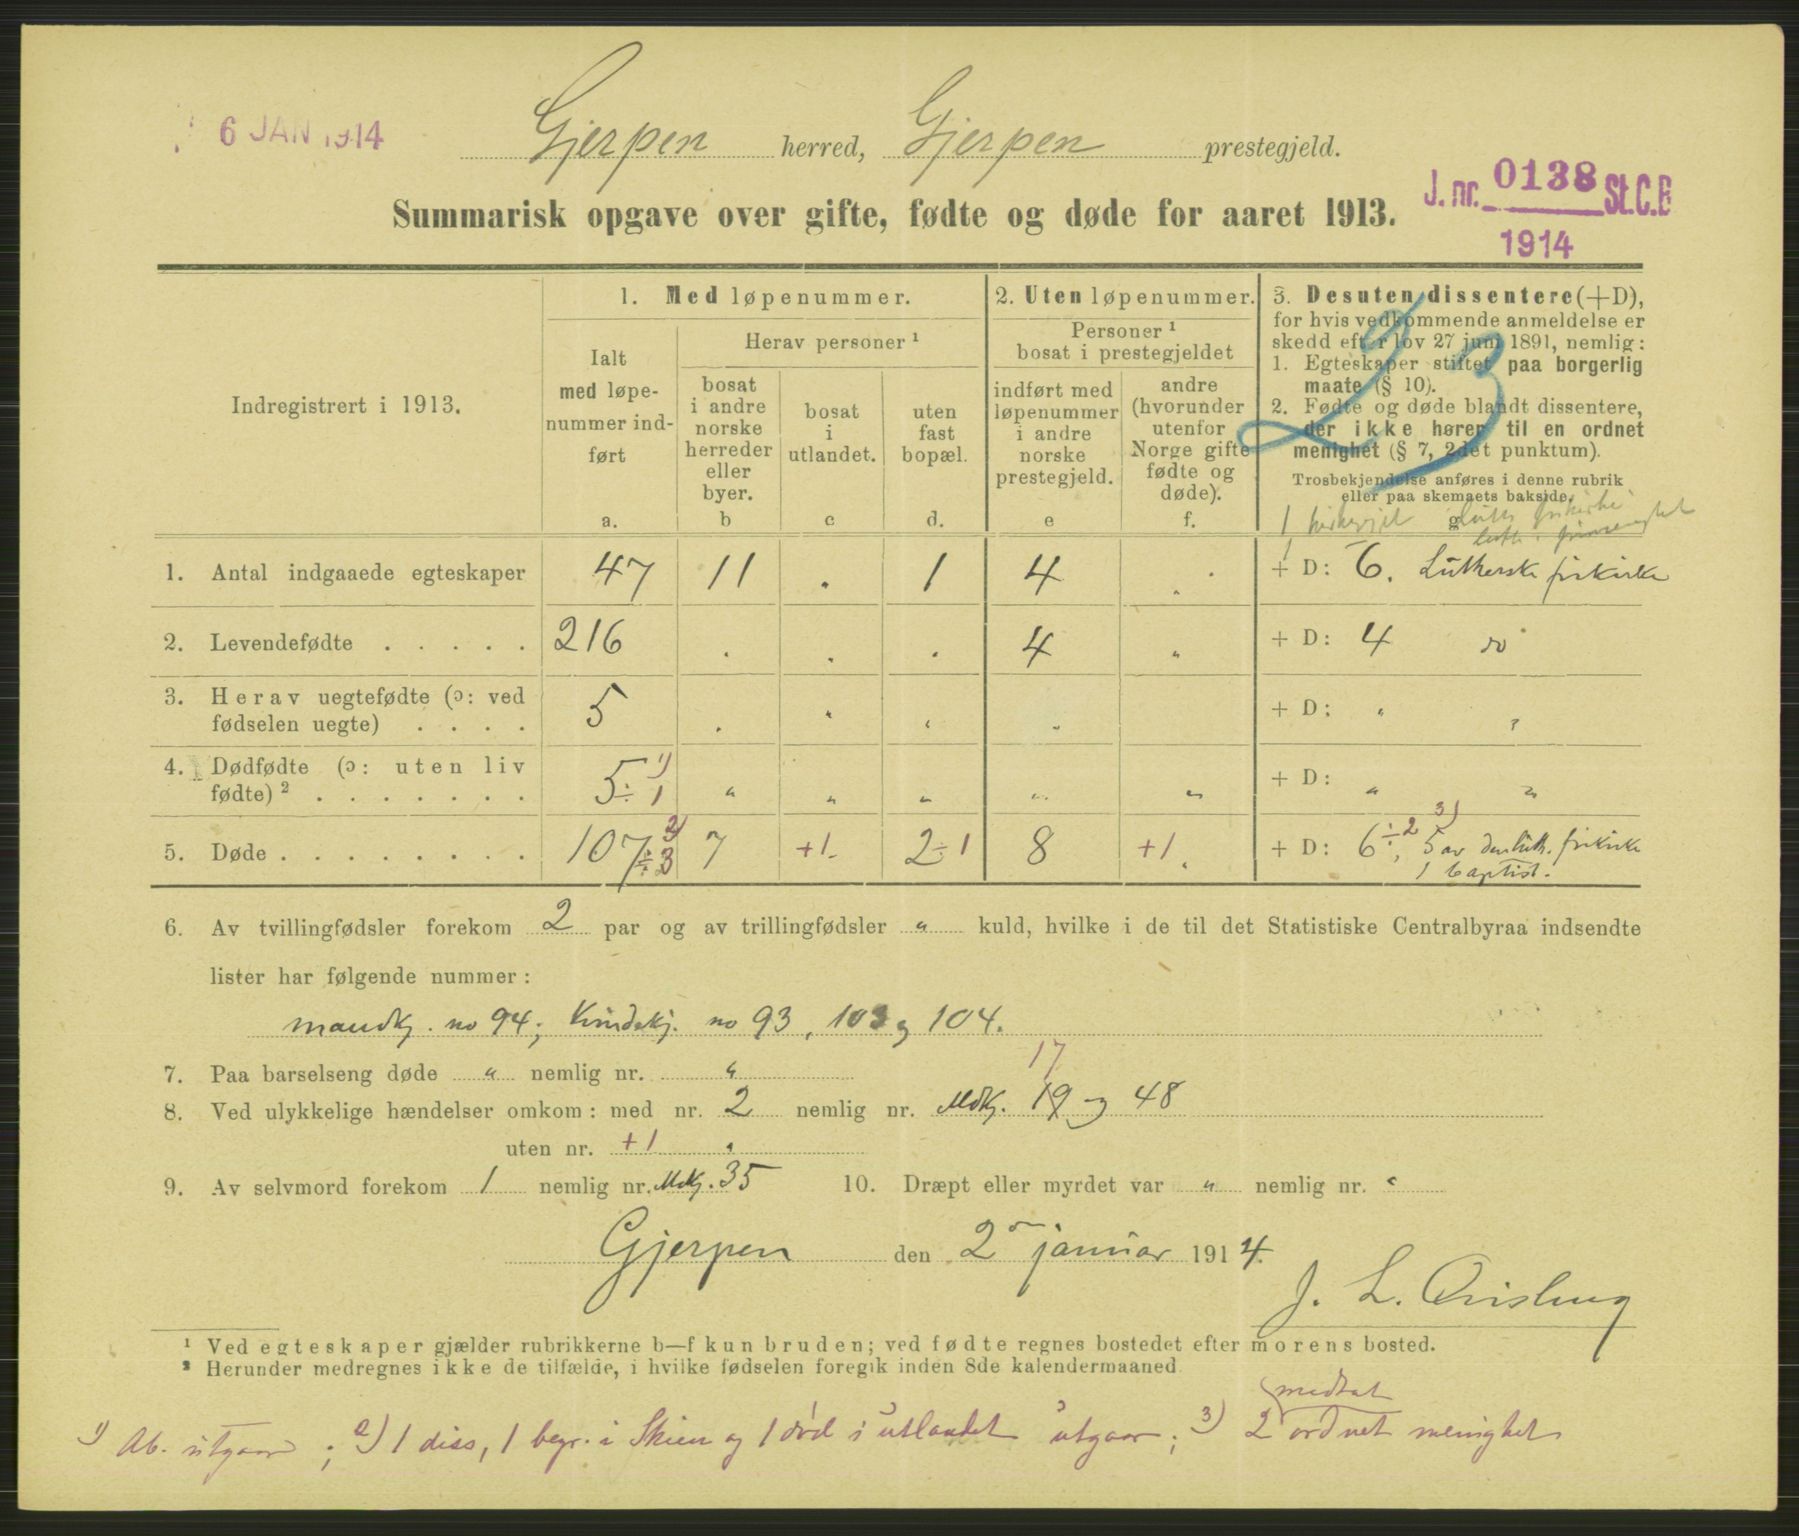 6 JAN 1914
Gjerpen herred, Gjerpen prestegjeld.
J. nr. 0138 St.C.B
1914
Summarisk opgave over gifte, fødte og døde for aaret 1913.
Indregistrert i 1913.
1. Med løpenummer.
Ialt
med løpe-
nummer ind-
ført
a.
Herav personer ¹
bosat
i andre
norske
herreder
eller
byer.
b
bosat
i
utlandet.
c
uten
fast
bopæl.
d.
2. Uten løpenummer.
Personer ¹
bosat i prestegjeldet
indført med
løpenummer
i andre
norske
prestegjeld.
e
andre
(hvorunder
utenfor
Norge gifte
fødte og
døde).
f.
3. Desuten dissentere (+D),
for hvis vedkommende anmeldelse er
skedd efter lov 27 juni 1891, nemlig:
1. Egteskaper stiftet paa borgerlig
maate (§ 10).
2. Fødte og døde blandt dissentere,
der ikke hører til en ordnet
menighet (§ 7, 2det punktum).
Trosbekjendelse anføres i denne rubrik
eller paa skemaets bakside.
g
23
1. Antal indgaaede egteskaper 47 11 . 1 4 „ + D: 6. Lutherske frikirke
2. Levendefødte . . . . . 216 . . . 4 „ + D: 4 do
3. Herav uegtefødte (ɔ: ved
fødselen uegte) . . . . 5 . „ „ „ + D: „ „
4. Dødfødte (ɔ: uten liv
fødte) ² . . . . . . . 5 ÷ 1 ¹) „ „ „ „ „ + D: „ „
5. Døde . . . . . . . . . 107 ÷ 3 ²) 7 +1. 2 ÷ 1 8 +1. + D: 6 ÷ 2 ³), 5 av den luth. frikirke
1 baptist.
6. Av tvillingfødsler forekom 2 par og av trillingfødsler „ kuld, hvilke i de til det Statistiske Centralbyraa indsendte
lister har følgende nummer:
mandkj. no 94; Kvindekj. no 93, 103 og 104.
7. Paa barselseng døde „ nemlig nr. „
17
8. Ved ulykkelige hændelser omkom: med nr. 2 nemlig nr. Mdkj. 19 og 48
uten nr. +1 „
9. Av selvmord forekom 1 nemlig nr. Mdkj. 35 10. Dræpt eller myrdet var „ nemlig nr. „
Gjerpen den 2 januar 1914.
J. L. Qvisling
¹ Ved egteskaper gjælder rubrikkerne b—f kun bruden; ved fødte regnes bostedet efter morens bosted.
² Herunder medregnes ikke de tilfælde, i hvilke fødselen foregik inden 8de kalendermaaned
medtat
¹) Ab. utgaar ; ²) 1 diss, 1 begr. i Skien og 1 død i utlandet utgaar; ³) 2 ordnet menighet